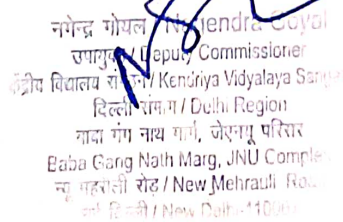 नगेन्द्र गोयल / Nagendra Goyal
उपायुक्त / Deputy Commissioner
केंद्रीय विद्यालय संगठन / Kendriya Vidyalaya
दिल्ली संभाग / Delhi Region
बाबा गंग नाथ मार्ग, जेएनयू परिसर
Baba Gang Nath Marg, JNU Comple
न्यू महरौली रोड़ / New Mehrauli
नई दिल्ली / New Delhi-11006